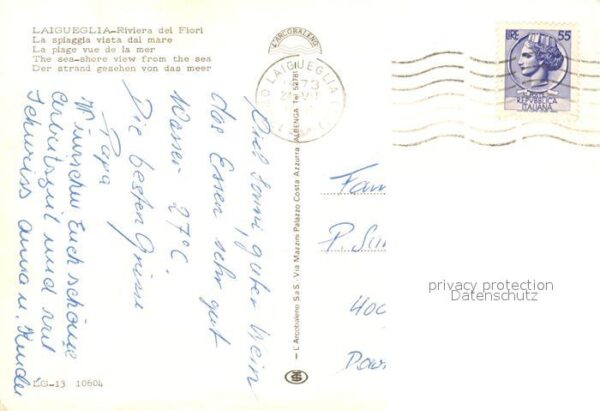 LAIGUEGLIA-Riviera dei Fiori
La spiaggia vista dal mare
La plage vue de la mer
The sea-shore view from the sea
Der strand gesehen von das meer
L'ARCOBALENO
LAIGUEGLIA
LIRE 55
REPUBBLICA
ITALIANA
Viel Sonne, guter Wein
das Essen sehr gut
Wasser 27°C.
Die besten Grüsse
Papa
Wünschen Euch schöne
Arbeitszeit und viel
Anna u. Kinder
Fam
P. Sim
400
privacy protection
Datenschutz
L'Arcobaleno S.a.S. - Via Mazzini Palazzo Costa Azzurra ALBENGA Tel 52781
LG-13 10604